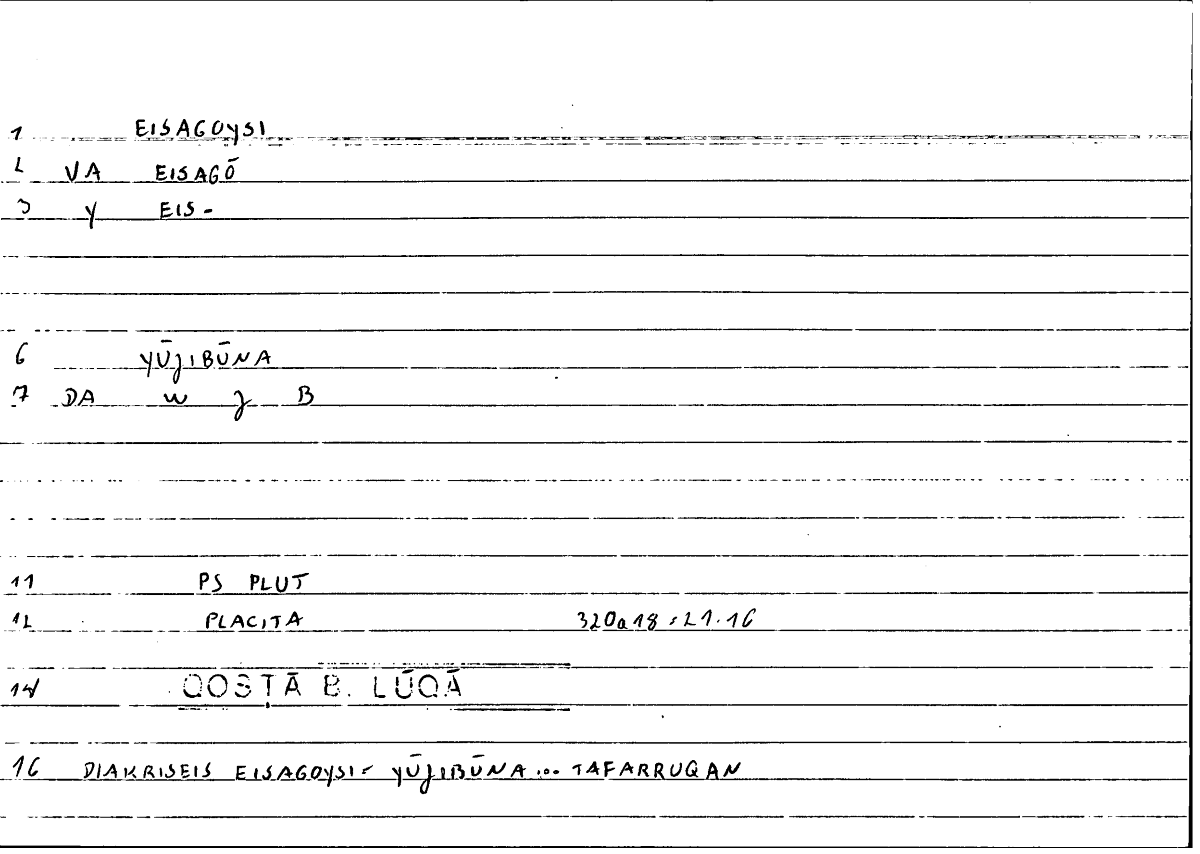 1 EISAGOYSI
2 VA EISAGŌ
3 Y EIS-
6 YŪJIBŪNA
7 DA W J B
11 PS PLUT
12 PLACITA 320a18 = 21.16
14 QOSṬĀ B. LŪQĀ
16 DIAKRISEIS EISAGOYSI = YŪJIBŪNA ... TAFARRUQAN